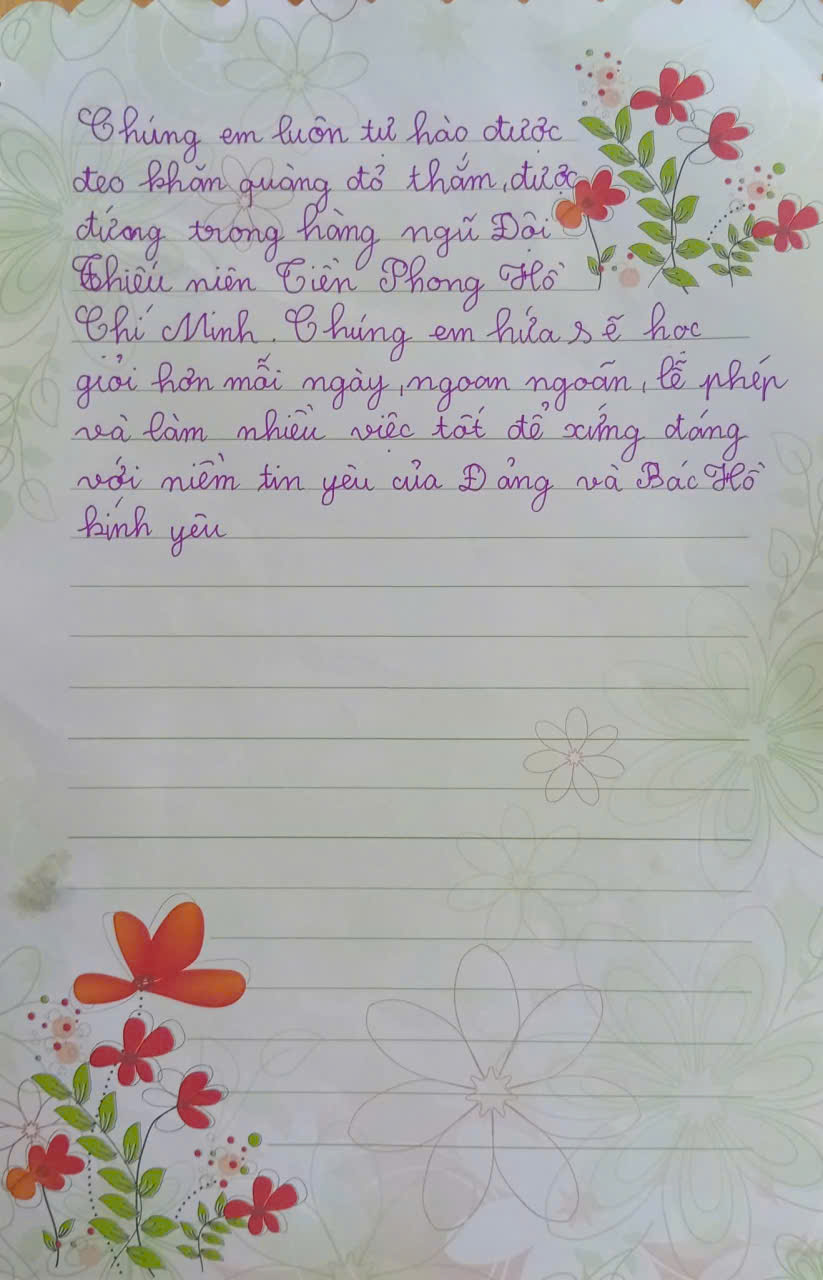 Chúng em luôn tự hào được
đeo khăn quàng đỏ thắm, được
đứng trong hàng ngũ Đội
Thiếu niên Tiền Phong Hồ
Chí Minh. Chúng em hứa sẽ học
giỏi hơn mỗi ngày, ngoan ngoãn, lễ phép
và làm nhiều việc tốt để xứng đáng
với niềm tin yêu của Đảng và Bác Hồ
kính yêu